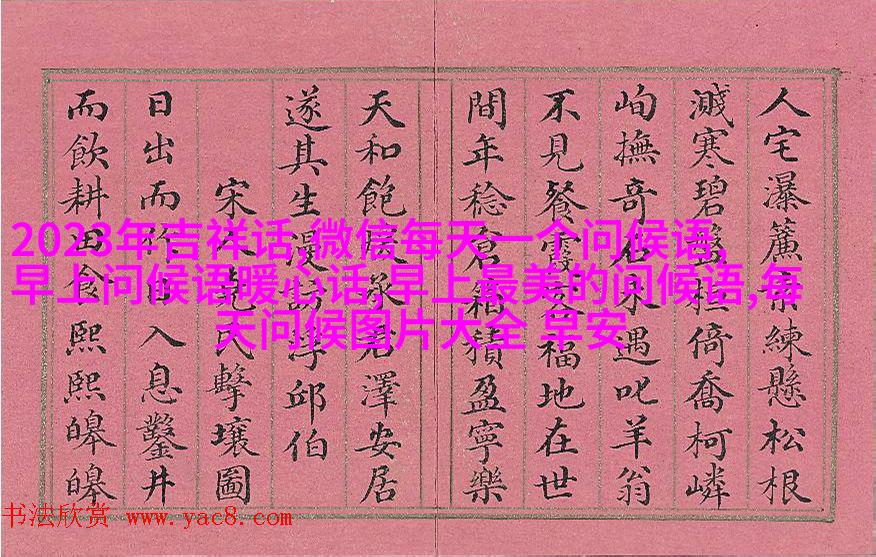 人宅瀑簾練懸松根
濺寒碧倚喬柯嶙
峋撫奇石未遇叱羊翁
不見餐霞福地在世
間年稔倉箱積盈寧樂
天和飽煖承君澤安居
遂其生漫訪浮邱伯
宋人堯民擊壤圖
日出而作日入息鑿井
而飲耕田食熙熙皞皞
2023年吉祥话,微信每天一个问候语,
早上问候语暖心话,早上最美的问候语,每
天问候图片大全 早安
书法欣赏 www.yac8.com